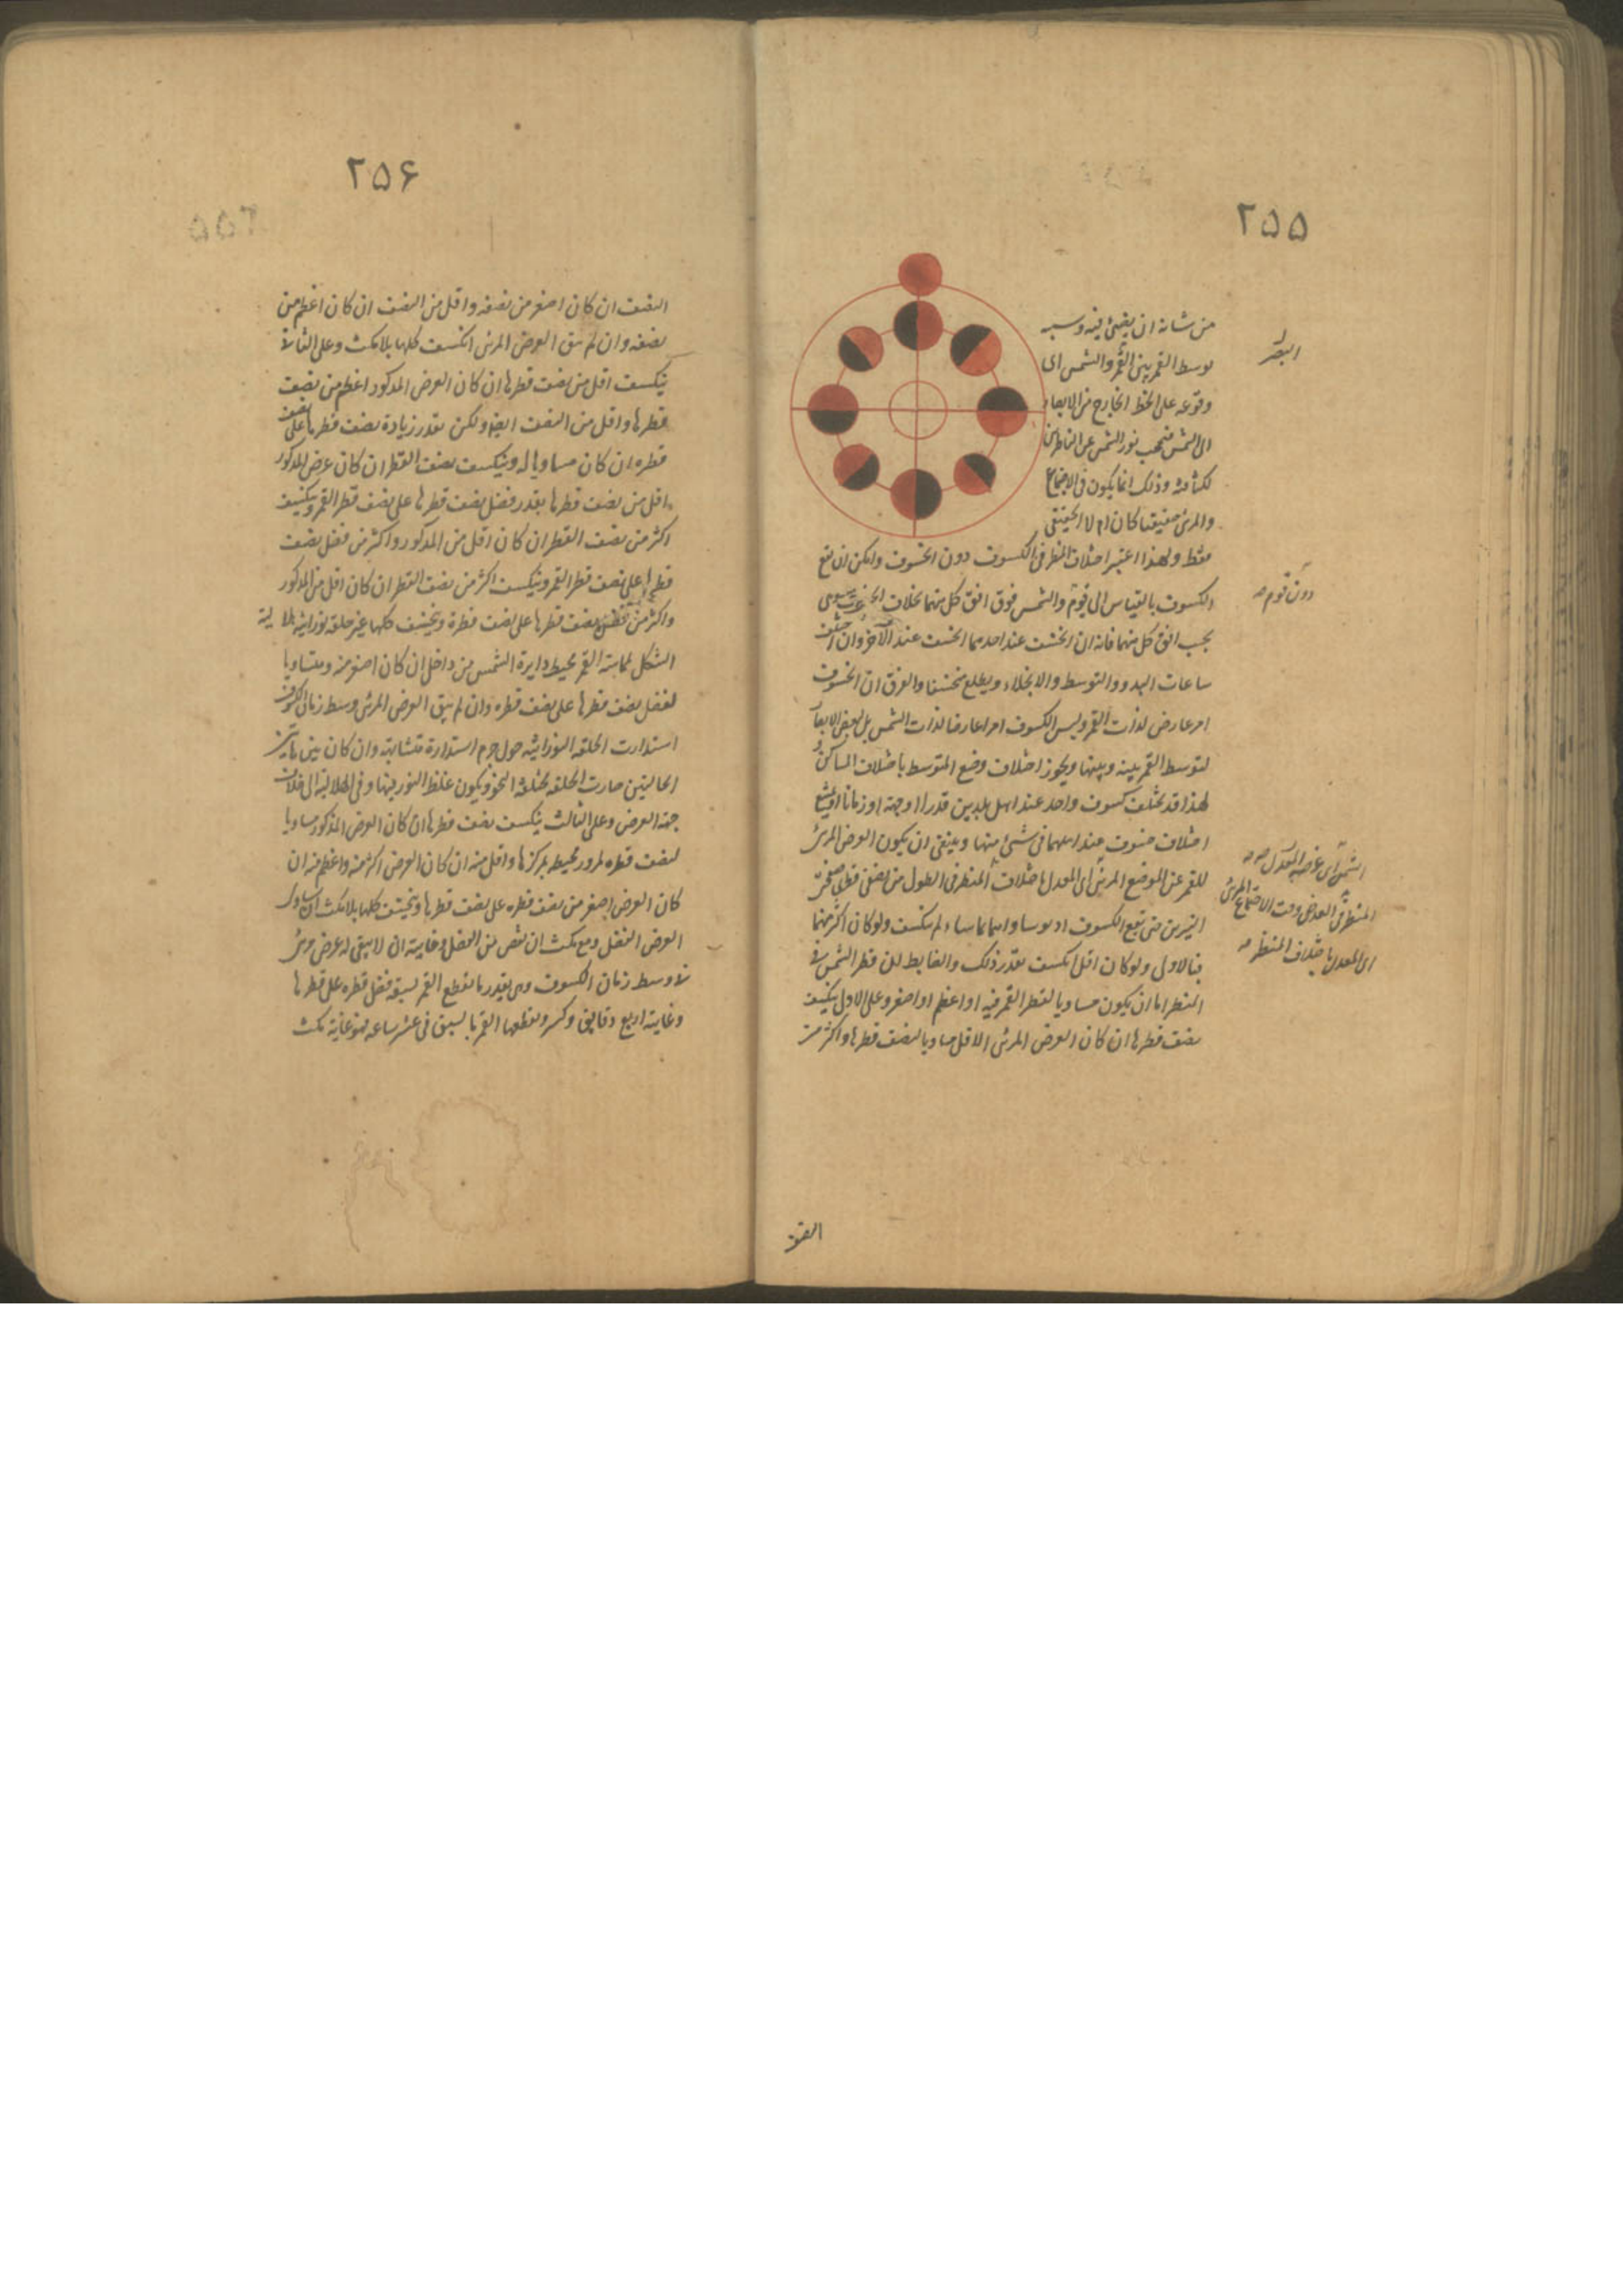 ٢٥٥
من شانه ان يضيئ فيه وسببه
توسط القمر بين البصر والشمس اى
وقوعه على الخط الخارج من الابصار
الى الشمس فيحجب نور الشمس عن الناظرين
لكثافته وذلك انما يكون فى الاجتماع
والمرئى حقيقيا كان ام لا الحقيقى
فقط ولهذا اعتبر اختلاف المنظر فى الكسوف دون الخسوف وامكن ان يقع
الكسوف بالقياس الى قوم والشمس فوق افق كل منهما بخلاف
بحسب افق كل منهما فانه ان انخسف عند احدهما انخسف عند الآخر وان اختلف
ساعات البدو والتوسط والانجلاء ويطلع منخسفا والفرق ان الخسوف
امر عارض لذات القمر وليس الكسوف امرا عارضا لذات الشمس بل لبعض الابصار
لتوسط القمر بينه وبينها ويجوز اختلاف وضع المتوسط باختلاف المساكن و
لهذا قد يختلف كسوف واحد عند اهل بلدين قدرا او جهة او زمانا
اختلاف خسوف عند اهلهما فى شئ منها وينبغى ان يكون العرض المرئى
للقمر عن الموضع المرئى اى المعدل باختلاف المنظر فى الطول من نصفى قطرى
النيرين حتى يقع الكسوف اذ لو ساواهما ماسها ولم ينكسف ولو كان اكثر منهما
فبالاولى ولو كان اقل انكسف بقدر ذلك والضابط ان قطر الشمس فى
المنظر اما ان يكون مساويا لقطر القمر فيه او اعظم او اصغر وعلى الاول ينكسف
نصف قطرها ان كان العرض المرئى الاقل مساويا لنصف قطرها واكثر من
البصر
دون قوم صح
المنظر فى العرض وقت الاجتماع المرئى
اى المعدل باختلاف المنظر صح
النصف
٢٥۶
النصف ان كان اصغر من نصفه واقل من النصف ان كان اعظم من
نصفه وان لم يبق العرض المرئى انكسف كلها بلا مكث وعلى الثانى
ينكسف اقل من نصف قطرها ان كان العرض المذكور اعظم من نصف
قطرها واقل من النصف ايضا ولكن بقدر زيادة نصف قطرها على نصف
قطره ان كان مساويا له وينكسف نصف القطر ان كان عرض المذكور
اقل من نصف قطرها بقدر فضل نصف قطرها على نصف قطر القمر وينكسف
اكثر من نصف القطر ان كان اقل من المذكور واكثر من فضل نصف
قطرها على نصف قطر القمر وينكسف اكثر من نصف القطر ان كان اقل من المذكور
واكثر من فضل نصف قطرها على نصف قطره وينخسف كلها غير حلقة نورانية هلالية
الشكل لمماسة القمر محيط دايرة الشمس من داخل ان كان اصغر منه ومتساويا
لفضل نصف قطرها على نصف قطره وان لم يبق العرض المرئى وسط زمان الكسوف
استدارت الحلقة النورانية حول جرم استدارة متشابهة وان كان بين هاتين
الحالتين صارت الحلقة مختلفة الثخن ويكون غلظ النور فيها وفى الهلالية الى خلاف
جهة العرض وعلى الثالث ينكسف نصف قطرها ان كان العرض المذكور مساويا
لنصف قطره لمرور محيطه بمركزها واقل منه ان كان العرض اكثر منه واعظم منه ان
كان العرض اصغر من نصف قطره على نصف قطرها وينخسف كلها بلا مكث ان ساوى
العرض الفضل ومع مكث ان نقص من الفضل وغايته ان لا يبقى له عرض مرئى
فى وسط زمان الكسوف وهى بقدر ما يقطع القمر بسبقه فضل قطره على قطرها
وغايته اربع دقايق وكسر ويقطعها القمر بالسبق فى عشر ساعة فهو غاية مكث